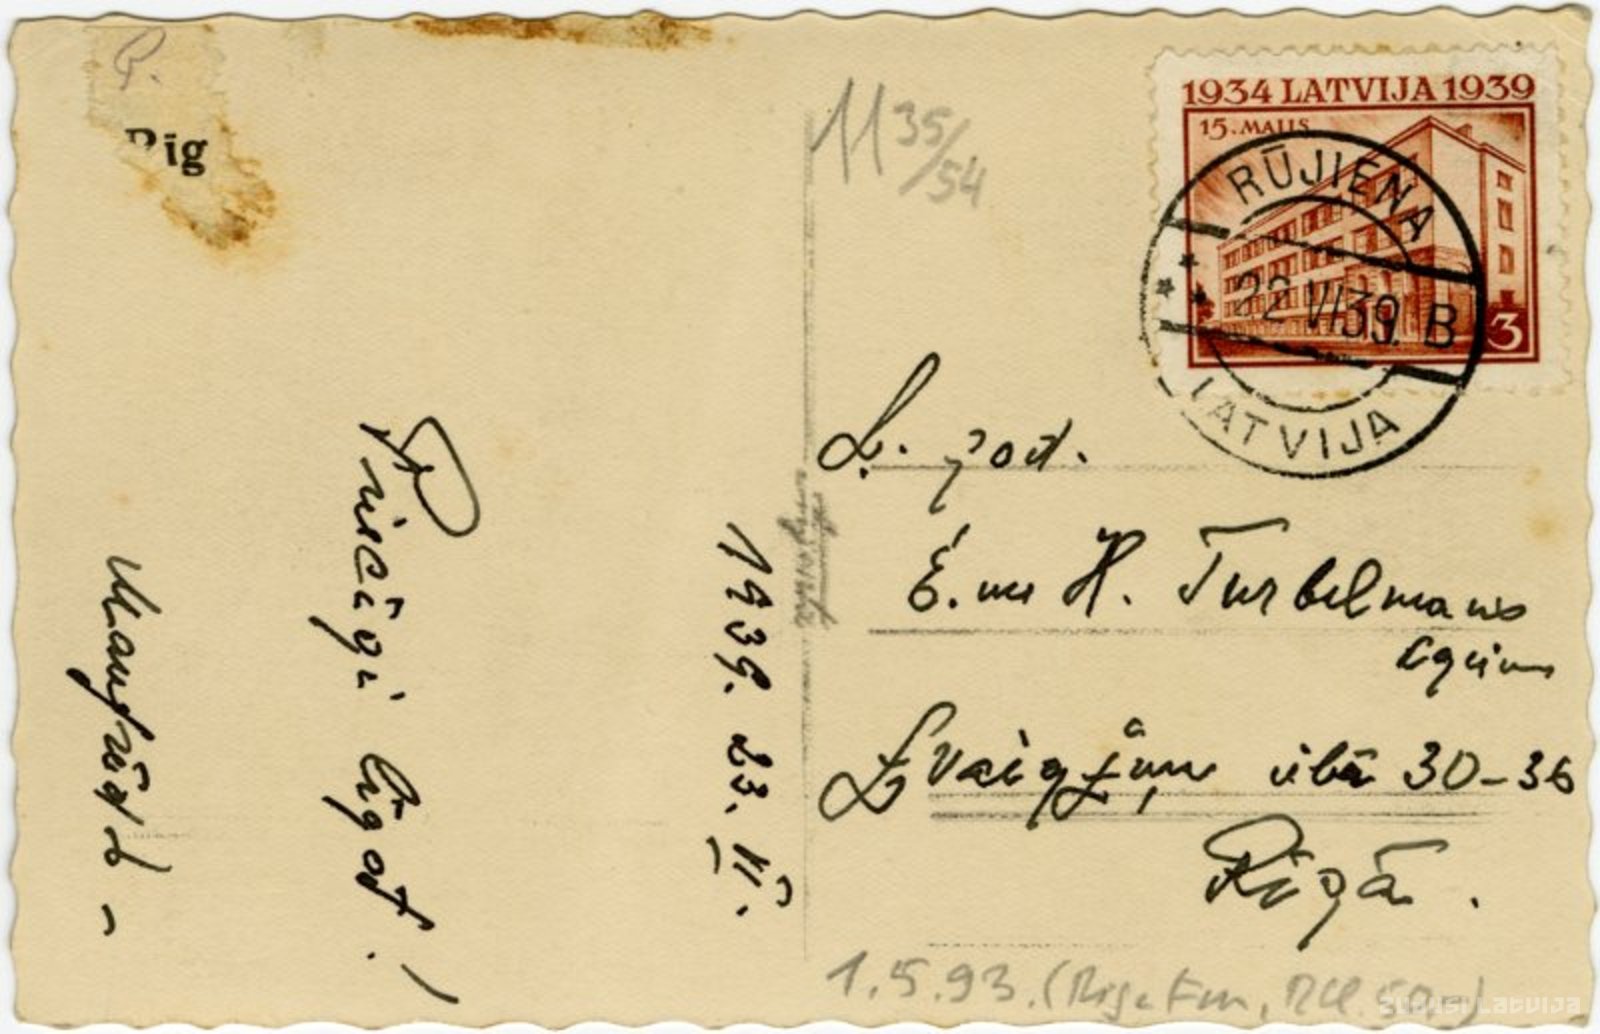 P.
Rig
Priecīgi līgot!
Manfrēds –
1939. 23. VI.
11 35/54
1934 LATVIJA 1939
15. MAIJS
3
RŪJIENA
22 VI 39. B
LATVIJA
Ļ. god.
E. un H. Turbelmans
kgiem
Zvaigžņu ielā 30-36
Rīgā.
1.5.93. (Riga
ZUDUSI LATVIJA